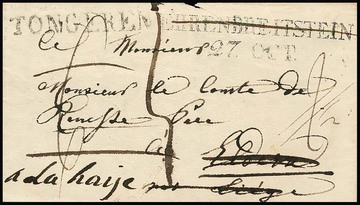 TONGEREN EHRENBREITSTEIN
27 OCT.
Monsieur
Monsieur le Comte de
Renesse Père
à
a La haije par Liége